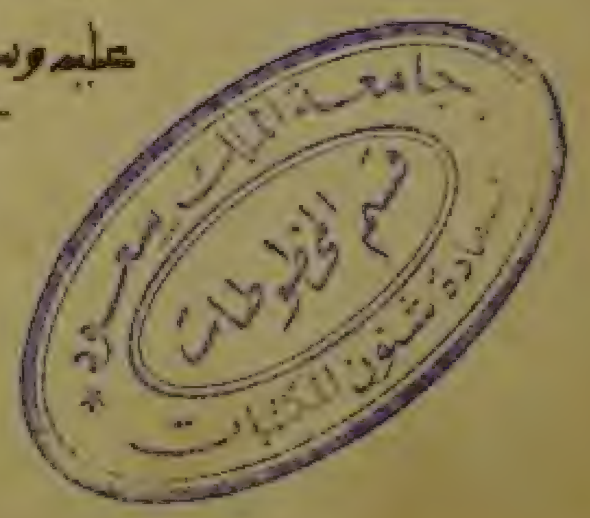 عليه وس
جامعة الملك سعود
قسم المخطوطات
عمادة شئون المكتبات
*